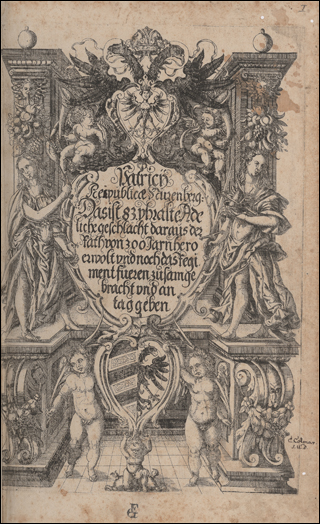 Patricij
Reipublicæ Nurenbrg:
Das ist 83 vhralte Ade
liche geschlacht daraus der
Rath von 300 Jarn hero
erwolt vnd noch das Regi
ment fueren zusamge
bracht vnd an
tag geben